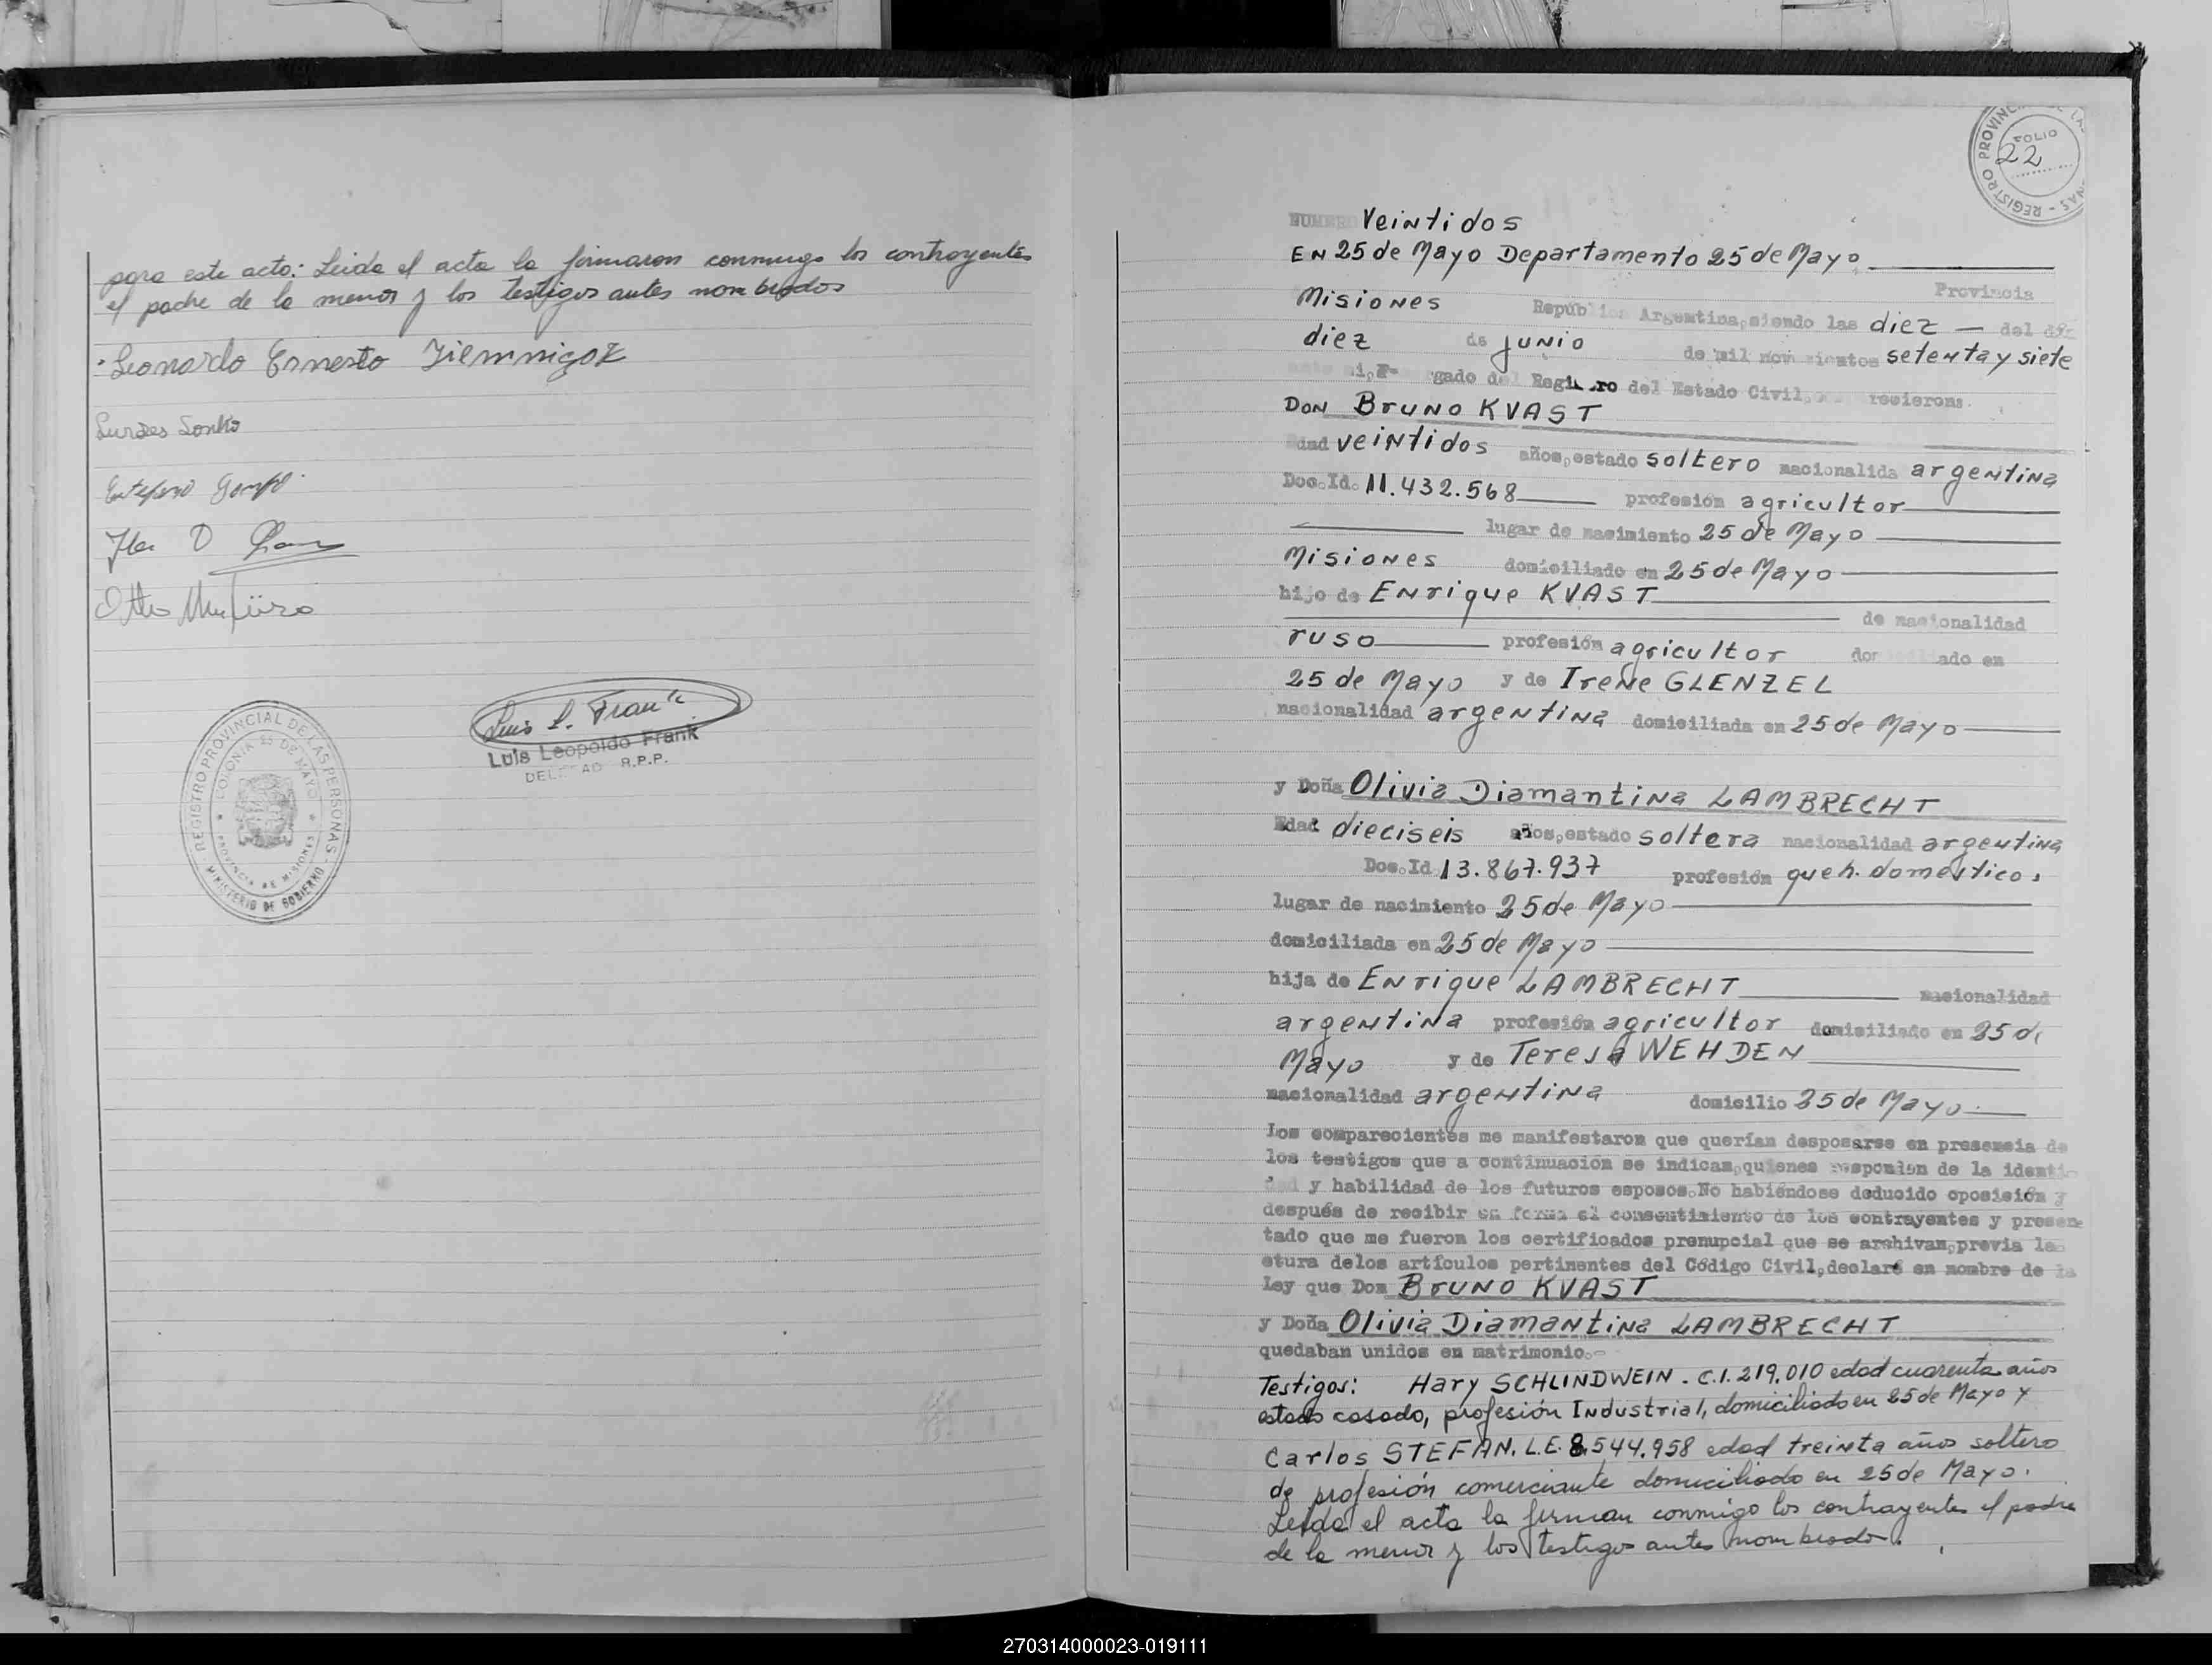 para este acto: Leida el acta la firmaron conmigo los contrayentes
el padre de la menor y los testigos antes nombrados
Leonardo Ernesto
Luis L. Frank
Luis Leopoldo Frank
R.P.P.
REGISTRO PROVINCIAL DE LAS PERSONAS
COLONIA 25 DE MAYO
PROVINCIA DE MISIONES
MINISTERIO DE GOBIERNO
REGISTRO PROVINC
FOLIO
22
NUMERO Veintidos
EN 25 de Mayo Departamento 25 de Mayo
Provincia
Misiones República Argentina, siendo las diez — del día
diez de junio de mil novecientos setenta y siete
gado del Registro del Estado Civil, recieron:
DON Bruno KVAST
Edad veintidos años, estado soltero nacionalida argentina
Doc. Id. 11.432.568 profesión agricultor
lugar de nacimiento 25 de Mayo
Misiones domiciliado en 25 de Mayo
hijo de Enrique KVAST
de nacionalidad
ruso profesión agricultor domiciliado en
25 de Mayo y de Irene GLENZEL
nacionalidad argentina domiciliada en 25 de Mayo
y Doña Olivia Diamantina LAMBRECHT
Edad dieciseis años, estado soltera nacionalidad argentina
Doc. Id 13.867.937 profesión queh. domesticos
lugar de nacimiento 25 de Mayo
domiciliada en 25 de Mayo
hija de Enrique LAMBRECHT nacionalidad
argentina profesión agricultor domiciliado en 25 de
Mayo y de Teresa WEHDEN
nacionalidad argentina domicilio 25 de Mayo
Los comparecientes me manifestaron que querían desposarse en presencia de
los testigos que a continuación se indican, quienes responden de la identi
dad y habilidad de los futuros esposos. No habiéndose deducido oposición y
después de recibir en forma el consentimiento de los contrayentes y presen
tado que me fueron los certificados prenupcial que se archivan, previa le
ctura delos artículos pertinentes del Código Civil, declaré en nombre de la
Ley que Don Bruno KVAST
y Doña Olivia Diamantina LAMBRECHT
quedaban unidos en matrimonio.-
Testigos: Hary SCHLINDWEIN - C.I. 219.010 edad cuarenta años
estado casado, profesión Industrial, domiciliado en 25 de Mayo y
Carlos STEFAN. L.E. 8.544.958 edad treinta años soltero
de profesión comerciante domiciliado en 25 de Mayo.
Leida el acta la firman conmigo los contrayentes el padre
de la menor y los testigos antes nombrados.
270314000023-019111